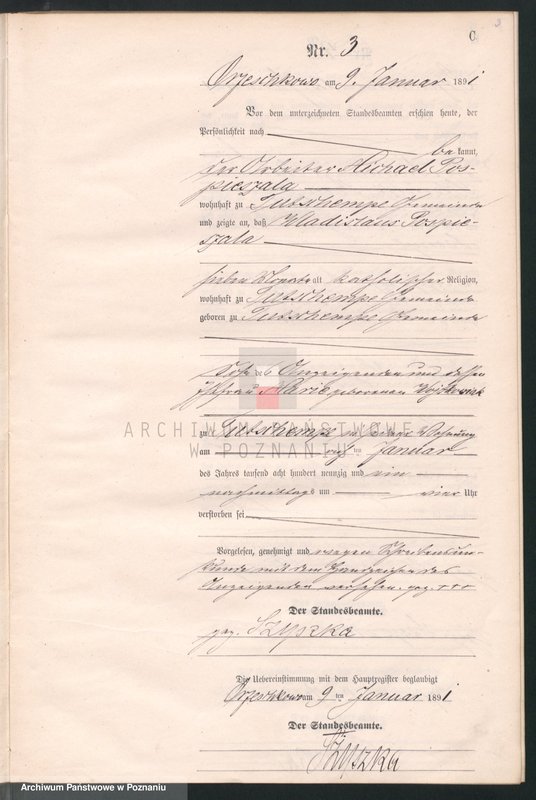 C.
Nr. 3
Orzeschkowo am 9. Januar 1891
Vor dem unterzeichneten Standesbeamten erschien heute, der
Persönlichkeit nach
be kannt,
der Arbeiter Michael Pos-
pieszala
wohnhaft zu Gutschempe Gemeinde
und zeigte an, daß Wladislaus Pospie-
szala
sieben Monate alt katholischer Religion,
wohnhaft zu Gutschempe Gemeinde
geboren zu Gutschempe Gemeinde
Sohn des Anzeigenden und dessen
Ehefrau Marie geborenen
zu Gutschempe in seiner Wohnung
am ten Januar
des Jahres tausend acht hundert neunzig und ein
nachmittags um vier Uhr
verstorben sei
Vorgelesen, genehmigt und wegen Schreibensun-
kunde mit dem Handzeichen des
Anzeigenden versehen. gez. +++
Der Standesbeamte.
gez. Szyszka
Die Uebereinstimmung mit dem Hauptregister beglaubigt
Orzeschkowo am 9 ten Januar 1891
Der Standesbeamte.
Szyszka
ARCHIWUM PAŃSTWOWE
W POZNANIU
Archiwum Państwowe w Poznaniu